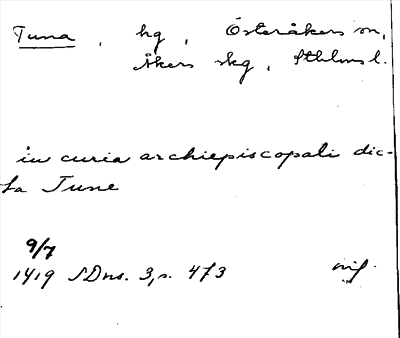 Tuna, hg, Österåkers sn,
Åkers skg, Sthlms l.
in curia archiepiscopali dic-
ta Tune
9/7
1419 SDns. 3, s. 473 orig.